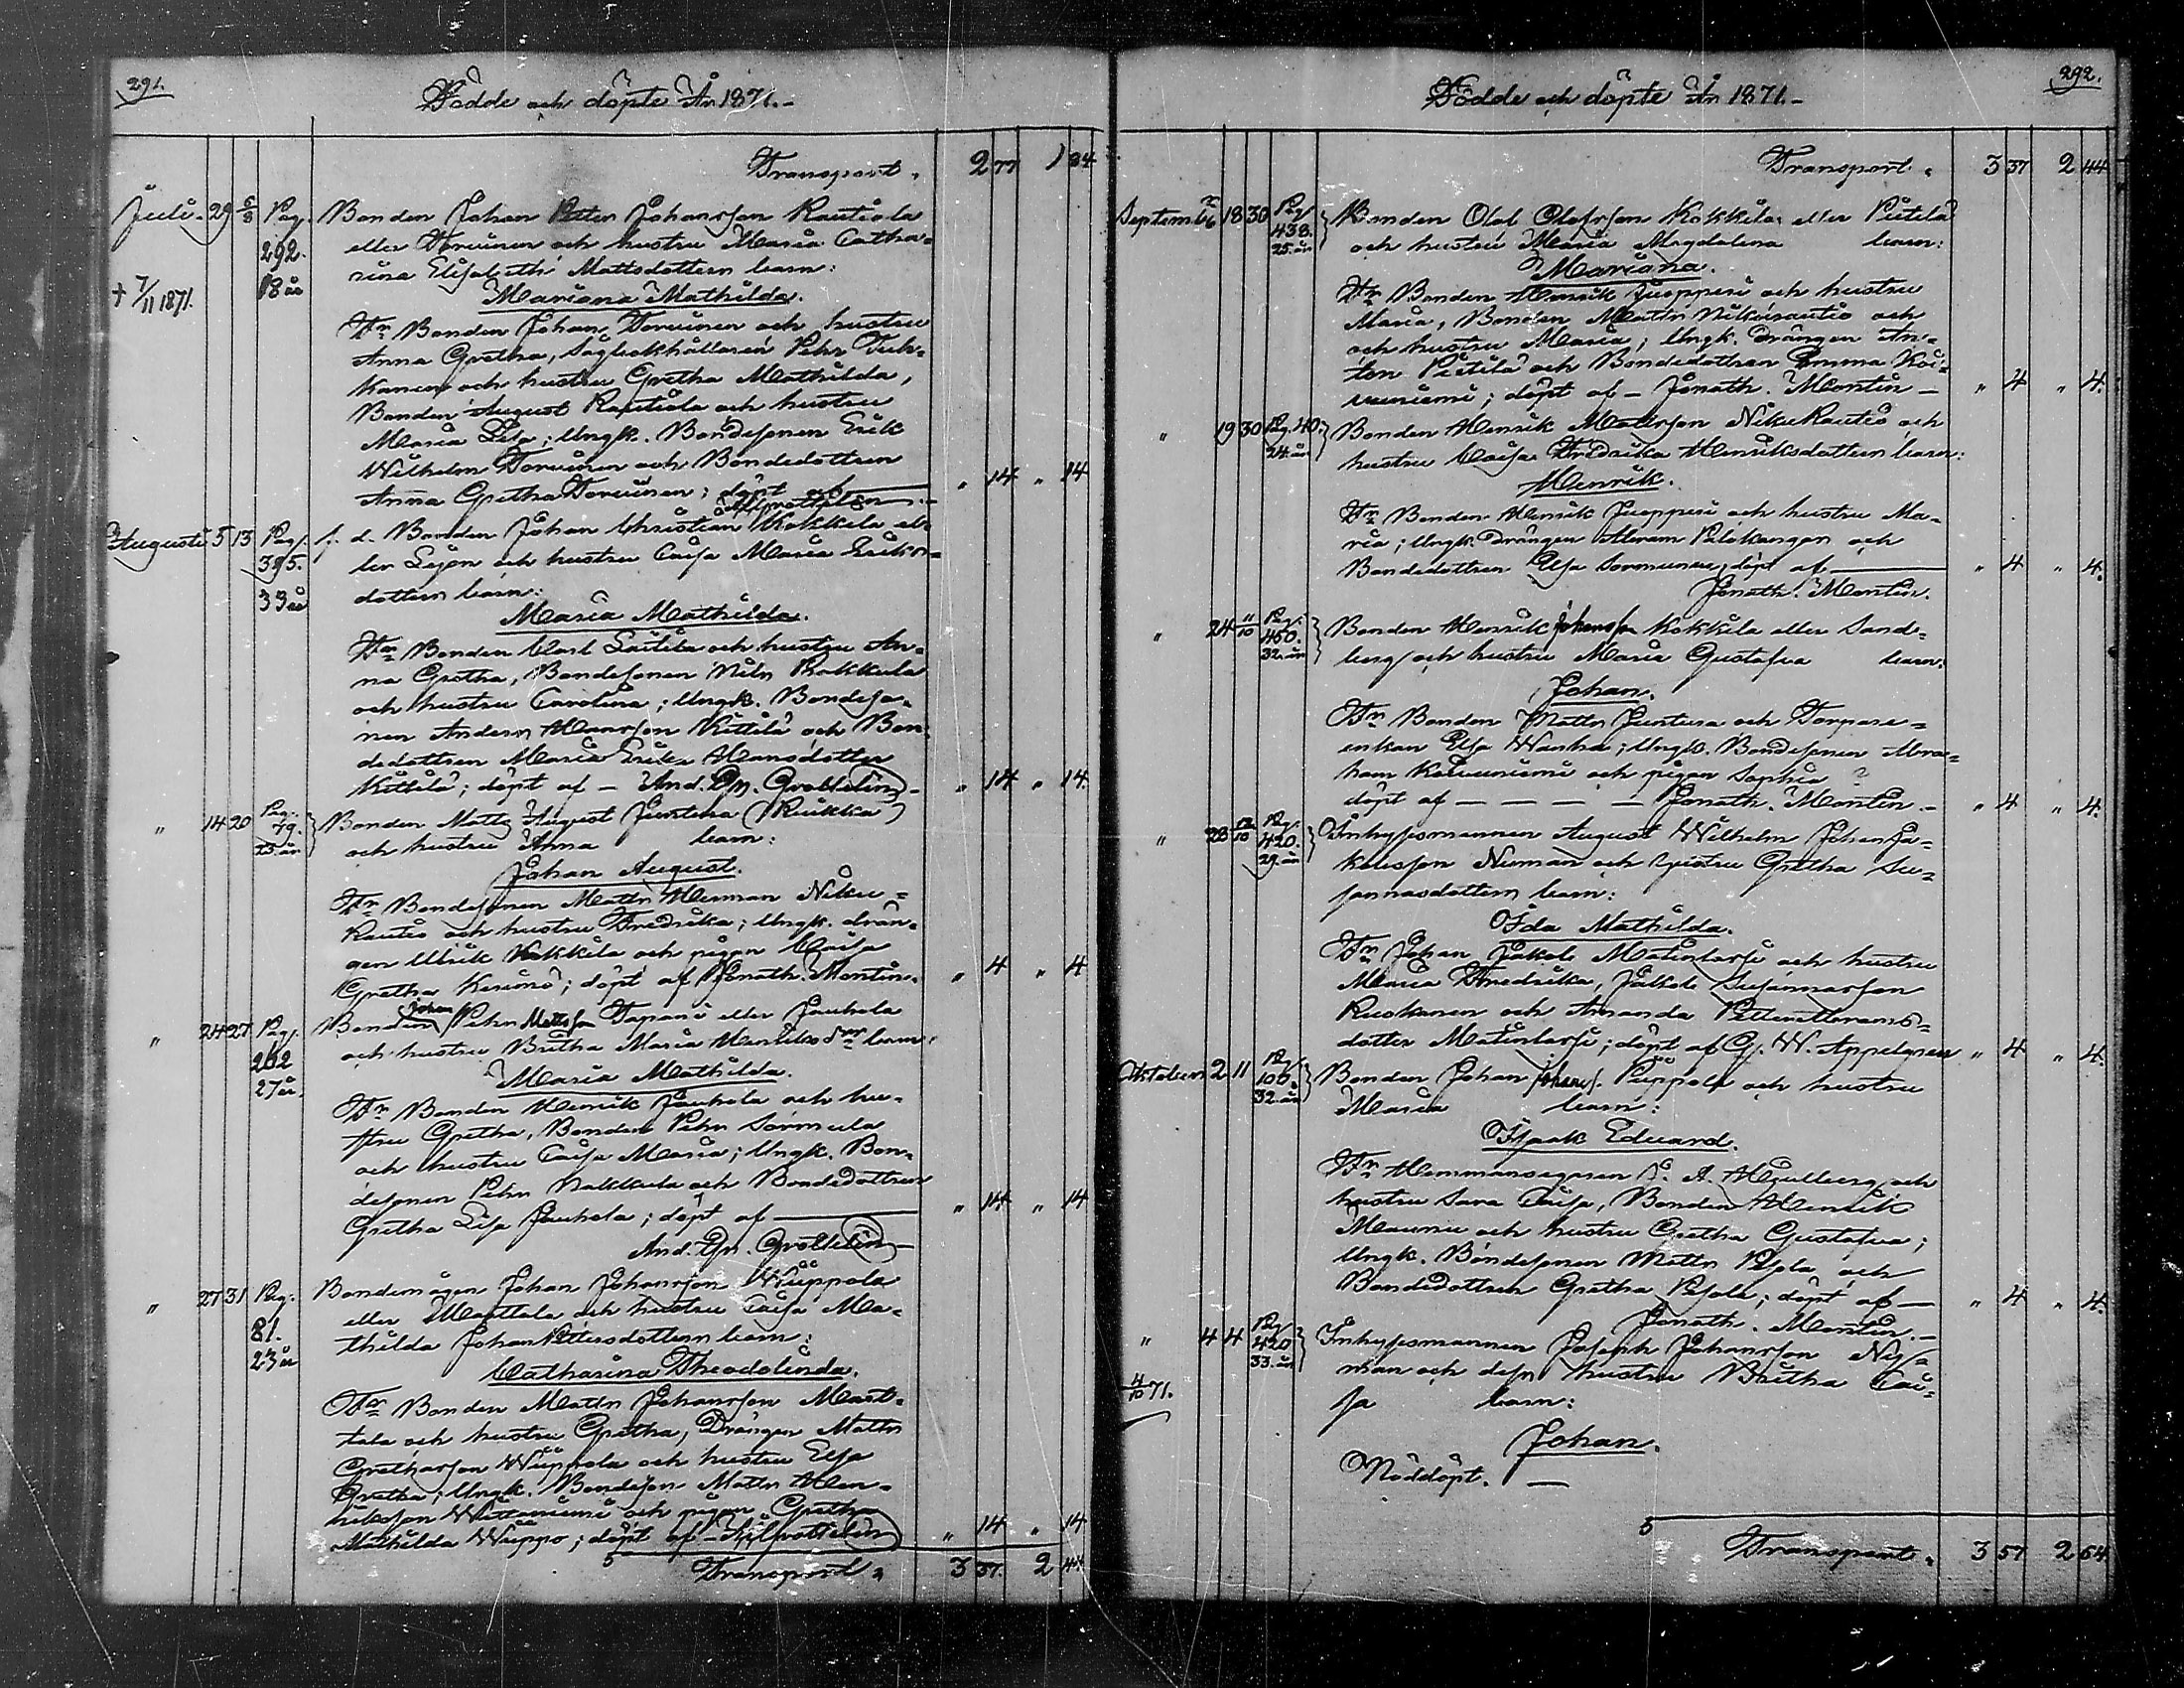 291.
Födde och döpte År 1871.-
Transport. 2 77 1 84
Juli. 29 6/8 Pag. Bonden Johan Petter Johansson Rautiola
292. eller Torvinen och hustru Maria Catha-
18 år rina Elisabeth Mattsdotters barn:
† 7/11 1871. Mariana Mathilda.
Fr Bonden Johan Torvinen och hustru
Anna Gretha, Sågbokhållaren Pehr
och hustru Gretha Mathilda,
Bonden August Rautiola och hustru
Maria Lisa; Ungk. Bondesonen Erik
Wilhelm Torvinen och Bondedottren
Anna Gretha Torvinen; döpt af — " 14 " 14
Augusti 5 13 Pag. f. d. Bonden Johan Christian Kokkila el-
395. ler Lejon och hustru Caisa Maria Eriks-
33 år dotters barn:
Maria Mathilda.
Fr Bonden Carl och hustru An-
na Gretha, Bondesonen Nils
och hustru Carolina; Ungk. Bondeso-
nen Anders Hansson Kittilä och Bon-
dedottren Maria Erika Hansdotter
Kittilä; döpt af — And. Grottelin - " 14 " 14.
" 14 20 Pag. 79. Bonden Matts August Juntura (Ruikka)
25. år och hustru Anna barn:
Johan August.
Fr Bondesonen Matts Herman Niku-
Rautio och hustru Fredrika; Ungk. drän-
gen Ulrik Kokkila och pigan Caisa
Gretha; döpt af Jonath. Montin. " 4 " 4
" 24 27 Pag. Bonden Johan Pehr Mattsson Tapani eller Jauhola
262 och hustru Britha Maria Henriksdr barn:
27 år. Maria Mathilda.
Fr Bonden Henrik Jauhola och hu-
stru Gretha, Bonden Pehr
och hustru Caisa Maria; Ungk. Bon-
desonen Pehr och Bondedottren
Gretha Lisa Jauhola; döpt af — " 14 " 14
And. Grottelin
" 27 31 Pag. Bondemågen Johan Johansson Wuippola
81. eller Marttala och hustru Caisa Ma-
23 år thilda Johan Pettersdotters barn:
Catharina Theodolinda.
Fr Bonden Matts Johansson Mart-
tala och hustru Gretha, Drängen Matts
Grethasson Wuippola och hustru Elsa
Gretha; Ungk. Bondeson Matts Hen-
riksson och pigan Gretha
Mathilda Wuippo; döpt af Grottelin " 14 " 14
5 Transport. 3 37. 2 44.
292.
Födde och döpte År 1871.-
Transport. 3 37 2 44
September 18 30 Pag. 438. Bonden Olof Olofsson Kokkila eller Pietilä
25. år och hustru Maria Magdalena barn:
Mariana.
Fr Bonden Henrik Juopperi och hustru
Maria, Bonden Matts Nikurautio och
och hustru Maria; Ungk. Drängen An-
ton Pietilä och Bondedottren Emma Koi-
vuniemi; döpt af — Jonath. Montin — " 4 " 4.
" 19 30 Pag. 40. Bonden Henrik Mattsson NikuRautio och
24. år hustru Caisa Fredrika Henriksdotters barn:
Henrik.
Fr Bonden Henrik Juopperi och hustru Ma-
ria; Ungk. Drängen Abram Palokangas och
Bondedottren Elsa Sormunen; döpt af — " 4 " 4.
Jonath. Montin.
" 24 11/10 Pag. 450. Bonden Henrik Johansson Kokkila eller Sand-
32. år berg och hustru Maria Gustafva barn:
Johan.
Fr Bonden Matts Juntura och Torpare-
enkan Elsa Wanha; Ungk. Bondesonen Abra-
ham Koivuniemi och pigan Sophia ?
döpt af — — — — Jonath. Montin.- " 4 " 4.
" 28 12/10 Pag. 420. Inhysesmannen August Wilhelm Johan Ja-
29. år kobsson Nieman och hustru Gretha Su-
sannasdotters barn:
Ida Mathilda.
Fr Johan Jakob Matinlassi och hustru
Maria Fredrika, Jakob Susannasson
Ruokanen och Amanda Petter Abrams-
dotter Matinlassi; döpt af G. W. Appelgren " 4 " 4.
Oktober 2 11 Pag. 106. Bonden Johan Johans. Puippola och hustru
32. år Maria barn:
Isaak Eduard.
Fr Hemmansegaren J. A. och
hustru Sara Caisa, Bonden Henrik
Maunu och hustru Gretha Gustafva;
Ungk. Bondesonen Matts och
Bondedottren Gretha; döpt af — " 4 " 4.
Jonath. Montin.-
" 4 4 Pag. 420 Inhysesmannen Joseph Johansson Ny-
33. år man och dess hustru Britha Cai-
4/10 71. sa barn:
Johan.
Nöddöpt. —
5
Transport. 3 57 2 64